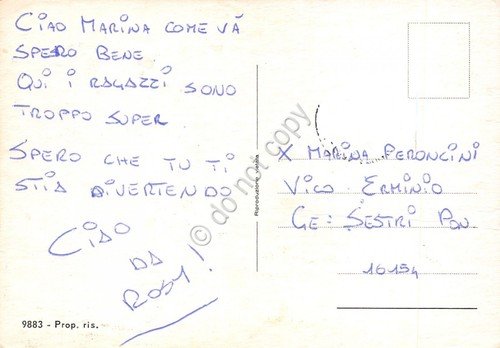 CIAO MARINA COME VÁ
SPERO BENE
QUI I RAGAZZI SONO
TROPPO SUPER
SPERO CHE TU TI
STIA DIVERTENDO
CIAO
DA
ROSY!
X MARINA PERONCINI
VICO ERMINIO
GE: SESTRI PON.
16154
Riproduzione vietata
9883 - Prop. ris.
© do not copy